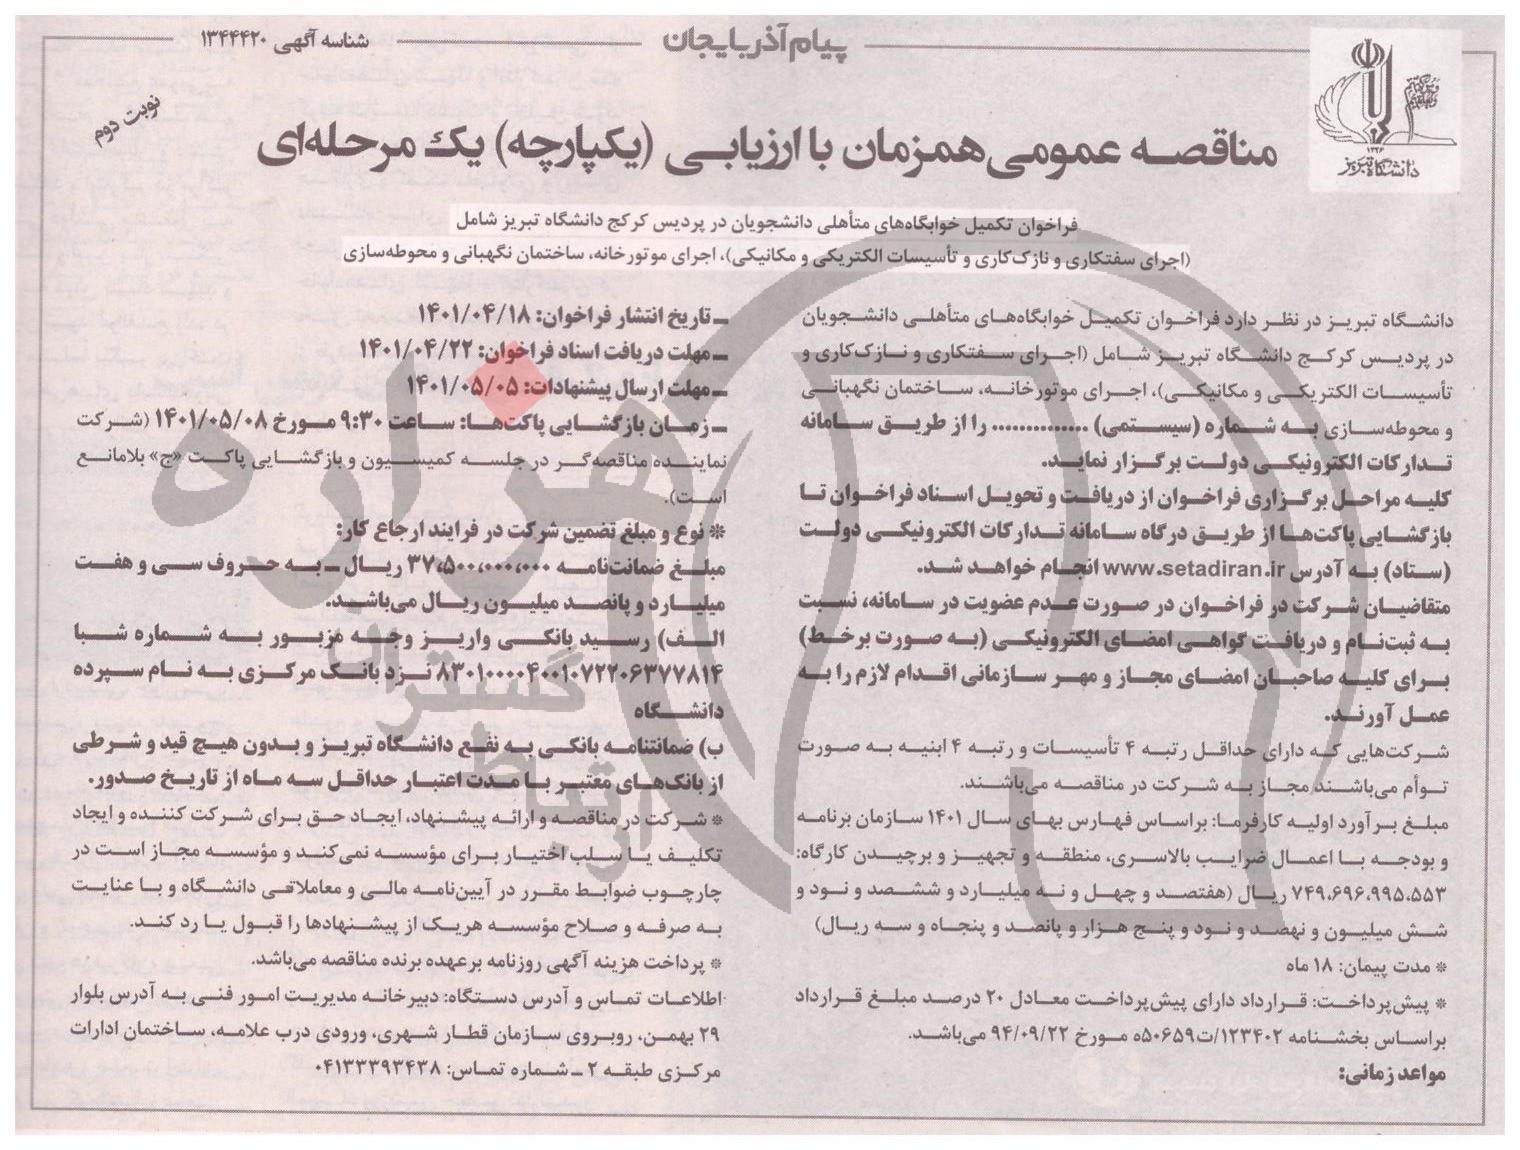 شناسه آگهی ۱۳۴۴۴۲۰
پیام آذربایجان
نوبت دوم
۱۳۲۶
دانشگاه تبریز
مناقصه عمومی همزمان با ارزیابی (یکپارچه) یک مرحله‌ای
فراخوان تکمیل خوابگاه‌های متأهلی دانشجویان در پردیس کرکج دانشگاه تبریز شامل
(اجرای سفتکاری و نازک‌کاری و تأسیسات الکتریکی و مکانیکی)، اجرای موتورخانه، ساختمان نگهبانی و محوطه‌سازی
دانشگاه تبریز در نظر دارد فراخوان تکمیل خوابگاه‌های متأهلی دانشجویان
در پردیس کرکج دانشگاه تبریز شامل (اجرای سفتکاری و نازک‌کاری و
تأسیسات الکتریکی و مکانیکی)، اجرای موتورخانه، ساختمان نگهبانی
و محوطه‌سازی به شماره (سیستمی) .............. را از طریق سامانه
تدارکات الکترونیکی دولت برگزار نماید.
کلیه مراحل برگزاری فراخوان از دریافت و تحویل اسناد فراخوان تا
بازگشایی پاکت‌ها از طریق درگاه سامانه تدارکات الکترونیکی دولت
(ستاد) به آدرس www.setadiran.ir انجام خواهد شد.
متقاضیان شرکت در فراخوان در صورت عدم عضویت در سامانه، نسبت
به ثبت‌نام و دریافت گواهی امضای الکترونیکی (به صورت برخط)
برای کلیه صاحبان امضای مجاز و مهر سازمانی اقدام لازم را به
عمل آورند.
شرکت‌هایی که دارای حداقل رتبه ۴ تأسیسات و رتبه ۴ ابنیه به صورت
توأم می‌باشند مجاز به شرکت در مناقصه می‌باشند.
مبلغ برآورد اولیه کارفرما: براساس فهارس بهای سال ۱۴۰۱ سازمان برنامه
و بودجه با اعمال ضرایب بالاسری، منطقه و تجهیز و برچیدن کارگاه:
۷۴۹،۶۹۶،۹۹۵،۵۵۳ ریال (هفتصد و چهل و نه میلیارد و ششصد و نود و
شش میلیون و نهصد و نود و پنج هزار و پانصد و پنجاه و سه ریال)
* مدت پیمان: ۱۸ ماه
* پیش‌پرداخت: قرارداد دارای پیش‌پرداخت معادل ۲۰ درصد مبلغ قرارداد
براساس بخشنامه ۱۲۳۴۰۲/ت۵۰۶۵۹ه مورخ ۹۴/۰۹/۲۲ می‌باشد.
مواعد زمانی:
ـ تاریخ انتشار فراخوان: ۱۴۰۱/۰۴/۱۸
ـ مهلت دریافت اسناد فراخوان: ۱۴۰۱/۰۴/۲۲
ـ مهلت ارسال پیشنهادات: ۱۴۰۱/۰۵/۰۵
ـ زمان بازگشایی پاکت‌ها: ساعت ۹:۳۰ مورخ ۱۴۰۱/۰۵/۰۸ (شرکت
نماینده مناقصه‌گر در جلسه کمیسیون و بازگشایی پاکت «ج» بلامانع
است).
* نوع و مبلغ تضمین شرکت در فرایند ارجاع کار:
مبلغ ضمانت‌نامه ۳۷،۵۰۰،۰۰۰،۰۰۰ ریال ـ به حروف سی و هفت
میلیارد و پانصد میلیون ریال می‌باشد.
الف) رسید بانکی واریز وجه مزبور به شماره شبا
۸۳۰۱۰۰۰۰۴۰۰۱۰۷۲۲۰۶۳۷۷۸۱۴ نزد بانک مرکزی به نام سپرده
دانشگاه
ب) ضمانتنامه بانکی به نفع دانشگاه تبریز و بدون هیچ قید و شرطی
از بانک‌های معتبر با مدت اعتبار حداقل سه ماه از تاریخ صدور.
* شرکت در مناقصه و ارائه پیشنهاد، ایجاد حق برای شرکت کننده و ایجاد
تکلیف یا سلب اختیار برای مؤسسه نمی‌کند و مؤسسه مجاز است در
چارچوب ضوابط مقرر در آیین‌نامه مالی و معاملاتی دانشگاه و با عنایت
به صرفه و صلاح مؤسسه هریک از پیشنهادها را قبول یا رد کند.
* پرداخت هزینه آگهی روزنامه برعهده برنده مناقصه می‌باشد.
اطلاعات تماس و آدرس دستگاه: دبیرخانه مدیریت امور فنی به آدرس بلوار
۲۹ بهمن، روبروی سازمان قطار شهری، ورودی درب علامه، ساختمان ادارات
مرکزی طبقه ۲ ـ شماره تماس: ۰۴۱۳۳۳۹۳۴۳۸
هزاره
گسترش
ارتباط